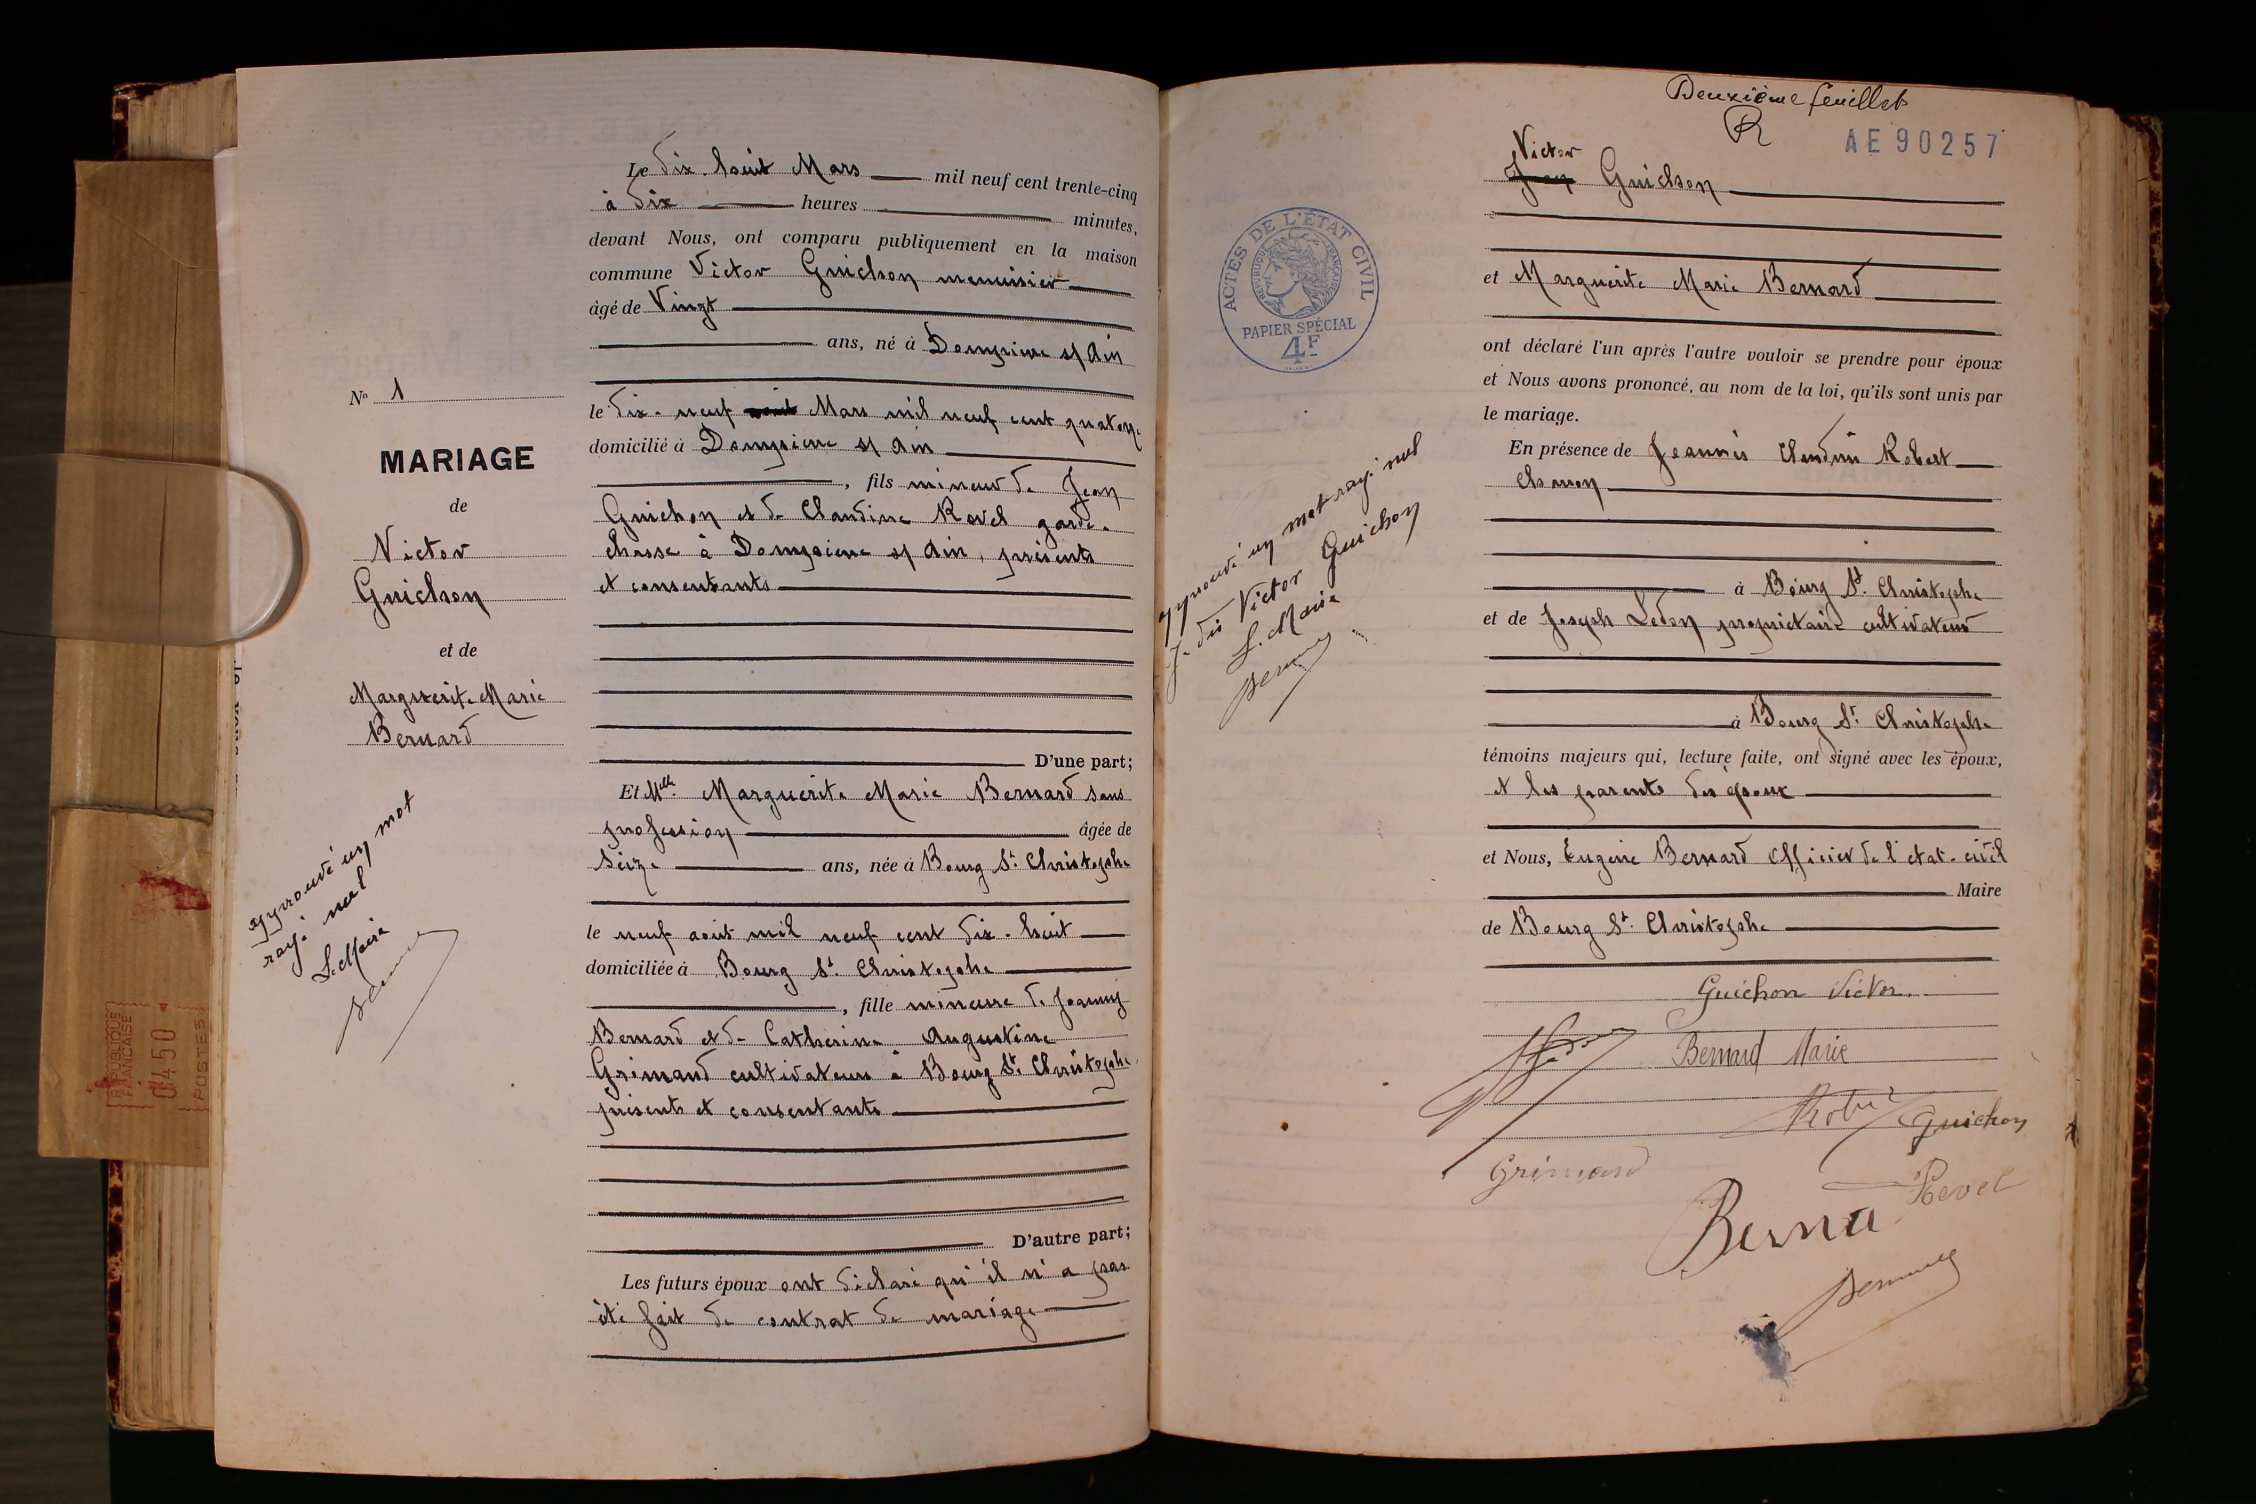 Le dix-huit Mars mil neuf cent trente-cinq
à dix heures minutes,
devant Nous, ont comparu publiquement en la maison
commune Victor Guichon menuisier
âgé de Vingt
ans, né à Dompierre s/ Ain
le dix-neuf Mars mil neuf cent quatorze
domicilié à Dompierre s/ Ain
, fils mineur de Jean
Guichon et de Claudine Revel garde-
chasse à Dompierre s/ Ain, présents
et consentants
D'une part;
Et Mlle Marguerite Marie Bernard sans
profession âgée de
seize ans, née à Bourg St Christophe
le neuf août mil neuf cent dix-huit
domiciliée à Bourg St Christophe
, fille mineure de Joanny
Bernard et de Catherine Augustine
Grimand cultivateurs à Bourg St Christophe
présents et consentants
D'autre part;
Les futurs époux ont déclaré qu'il n'a pas
été fait de contrat de mariage
No 1
MARIAGE
de
Victor
Guichon
et de
Marguerite Marie
Bernard
approuvé un mot
rayé nul
Le Maire
RÉPUBLIQUE
FRANÇAISE
0450
POSTES
Deuxième feuillet
R
AE 90257
Victor
Jean Guichon
et Marguerite Marie Bernard
ont déclaré l'un après l'autre vouloir se prendre pour époux
et Nous avons prononcé, au nom de la loi, qu'ils sont unis par
le mariage.
En présence de Jeannès Claudius Robert
charron
à Bourg St Christophe
et de Joseph Ledon propriétaire cultivateur
à Bourg St Christophe
témoins majeurs qui, lecture faite, ont signé avec les époux,
et les parents des époux
et Nous, Eugène Bernard Officier de l'état-civil
Maire
de Bourg St Christophe
ACTES DE L'ÉTAT CIVIL
RÉPUBLIQUE FRANÇAISE
PAPIER SPÉCIAL
4F
approuvé un mot rayé nul
Je dis Victor Guichon
Le Maire
Guichon Victor
Bernard Marie
Robert
Guichon
Grimand
Revel
Berna